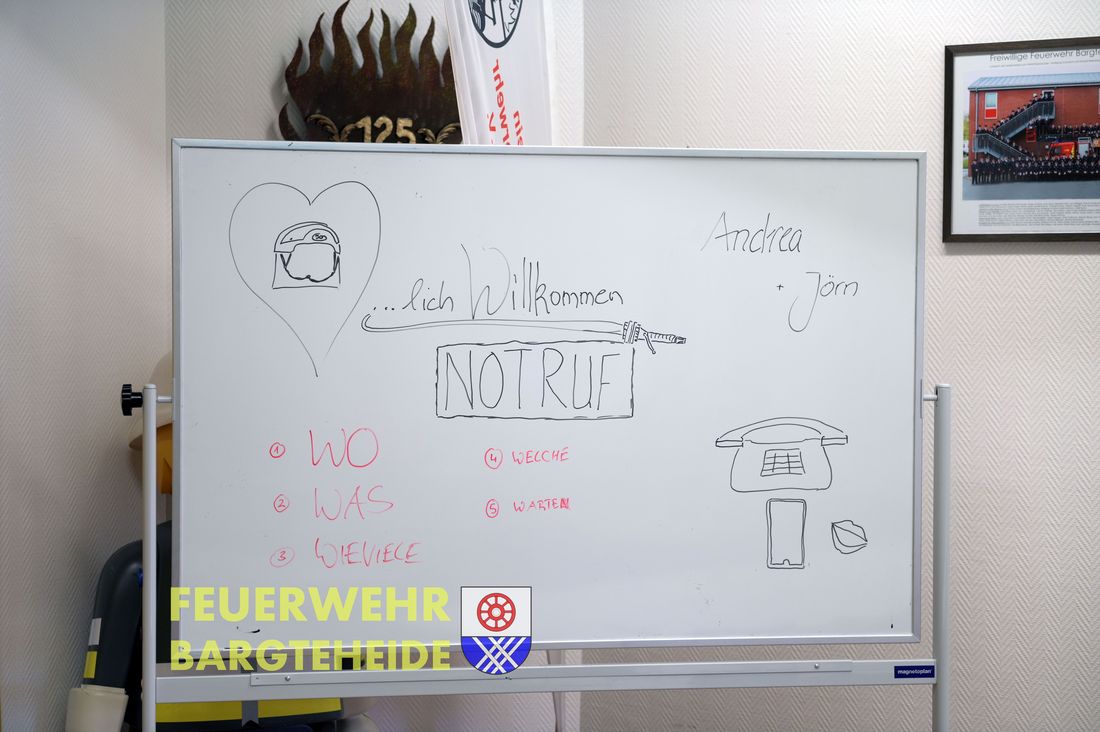 125
Freiwillige Feuerwehr Bargte
Andrea
+ Jörn
...lich Willkommen
NOTRUF
① WO
② WAS
③ WIEVIELE
④ WELCHE
⑤ WARTEN
FEUERWEHR
BARGTEHEIDE
magnetoplan